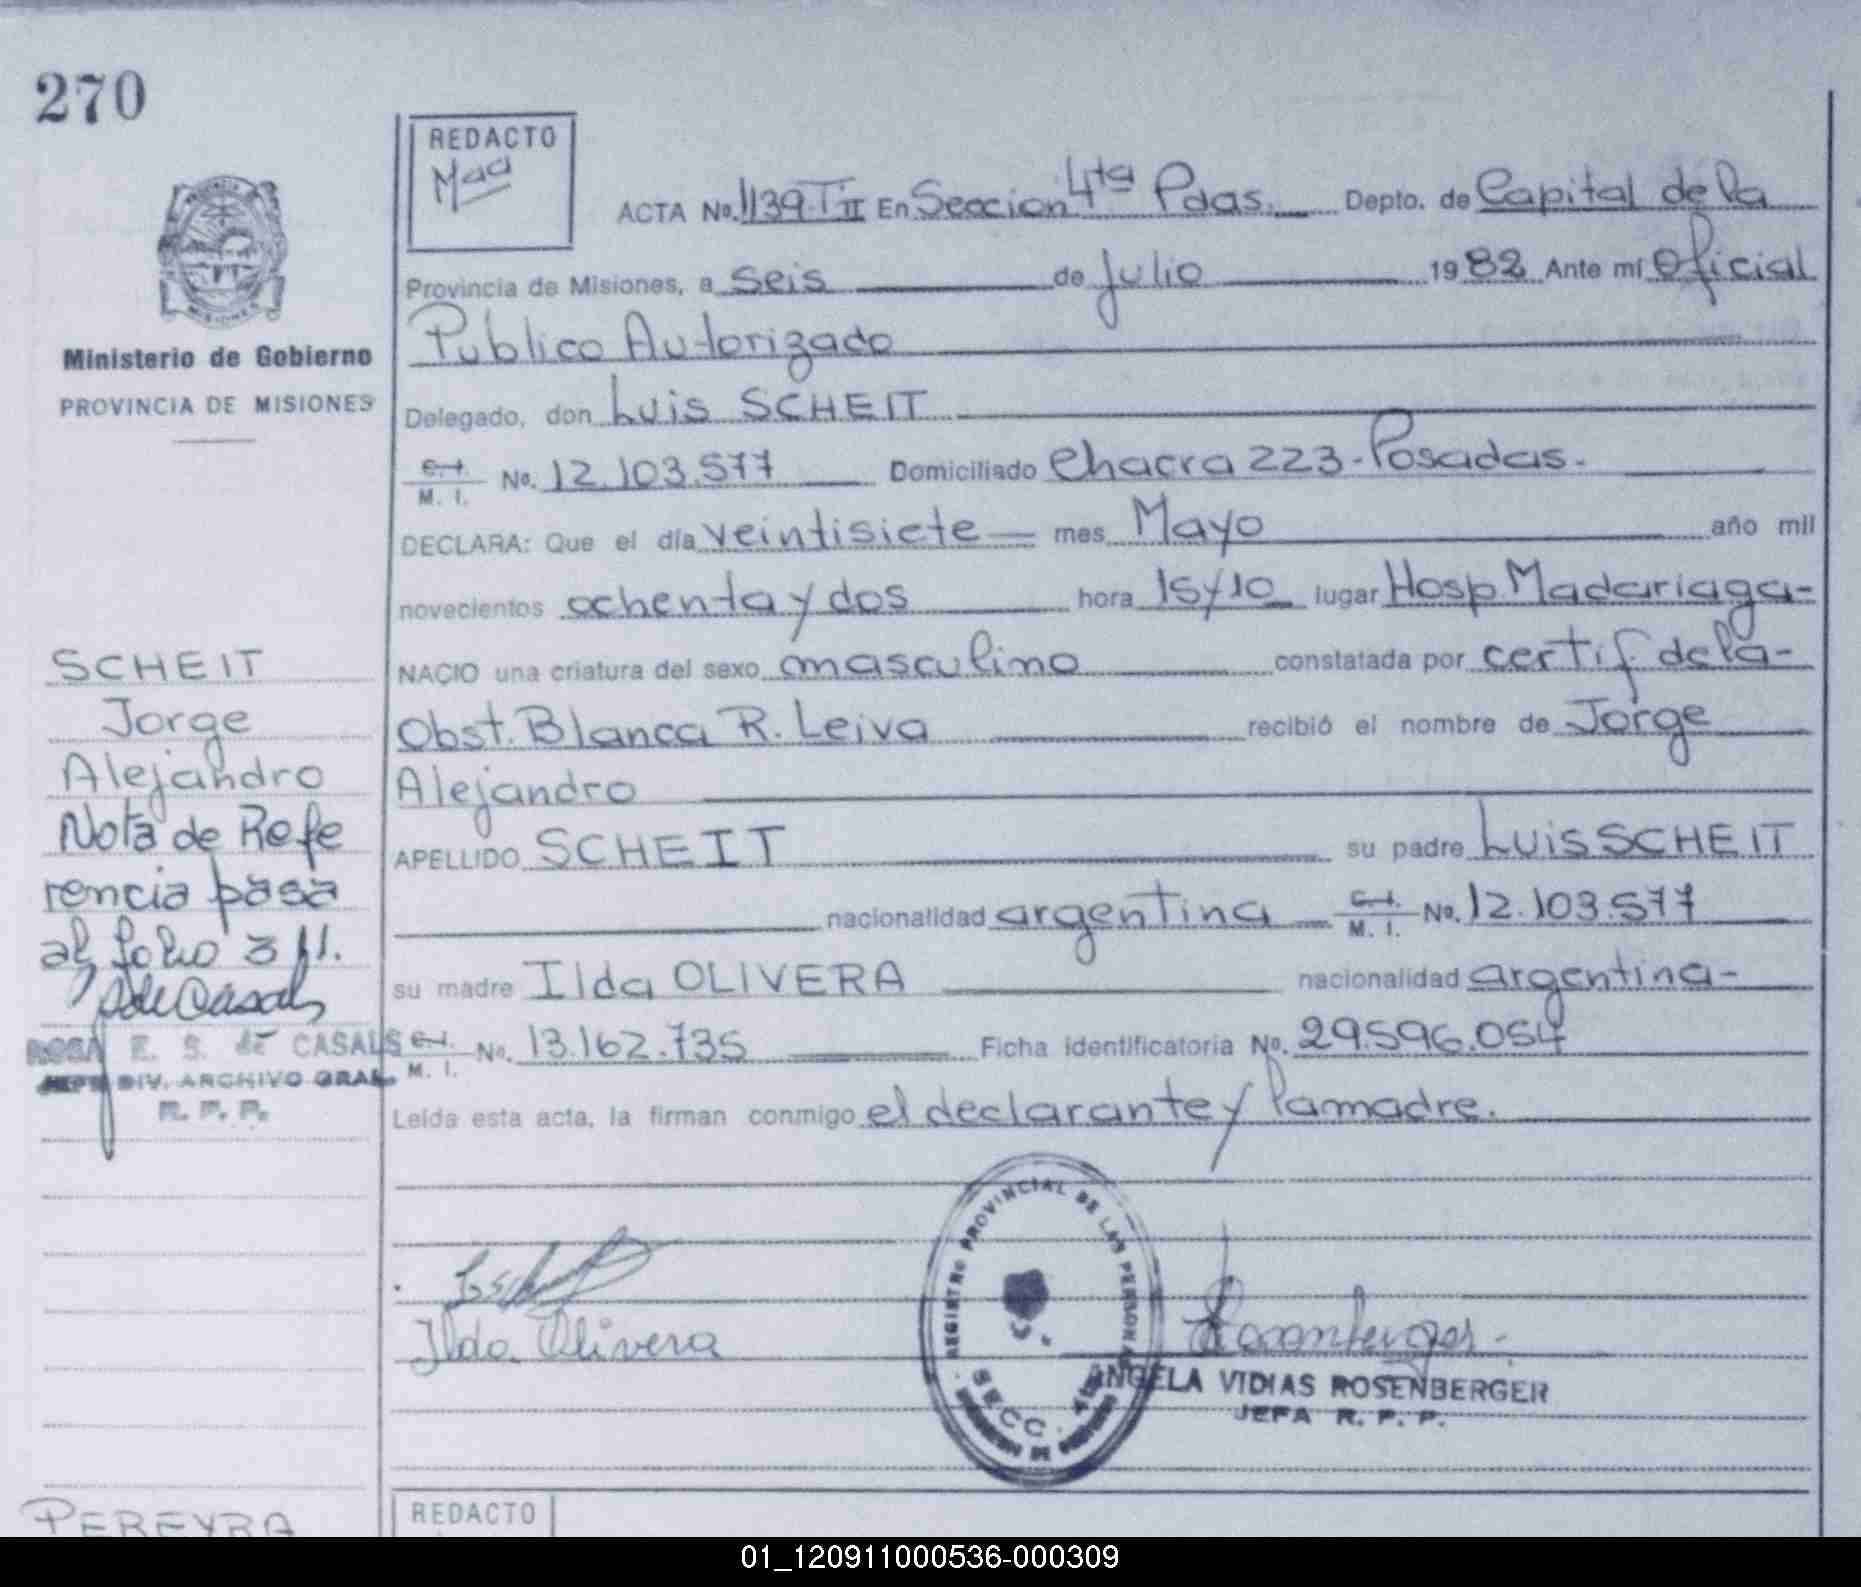 270
REDACTO
ACTA No. 1139 T II En Seccion 4ta Pdas. Depto. de Capital de la
Provincia de Misiones, a seis de Julio 1982 Ante mí Oficial
Publico Autorizado
Delegado, don Luis SCHEIT
C.I. M. I. No. 12.103.577 Domiciliado Chacra 223-Posadas-
DECLARA: Que el día veintisiete mes Mayo año mil
novecientos ochenta y dos hora 15y10 lugar Hosp. Madariaga-
NACIO una criatura del sexo masculino constatada por certif. de la-
Obst. Blanca R. Leiva recibió el nombre de Jorge
Alejandro
APELLIDO SCHEIT su padre Luis SCHEIT
nacionalidad argentina C.I. M. I. No. 12.103.577
su madre Ilda OLIVERA nacionalidad argentina-
C.I. M. I. No. 13.162.735 Ficha identificatoria No. 29.596.054
Leída esta acta, la firman conmigo el declarante y la madre.
Ilda Olivera
REGISTRO PROVINCIAL DE LAS PERSONAS
SECC. 4ta
ANGELA VIDIAS ROSENBERGER
JEFA R. P. P.
Ministerio de Gobierno
PROVINCIA DE MISIONES
SCHEIT
Jorge
Alejandro
Nota de Refe
rencia pasa
al folio 311.
ROSA E. S. de CASALS
JEFE DIV. ARCHIVO GRAL.
R. P. P.
PEREYRA
REDACTO
01_120911000536-000309